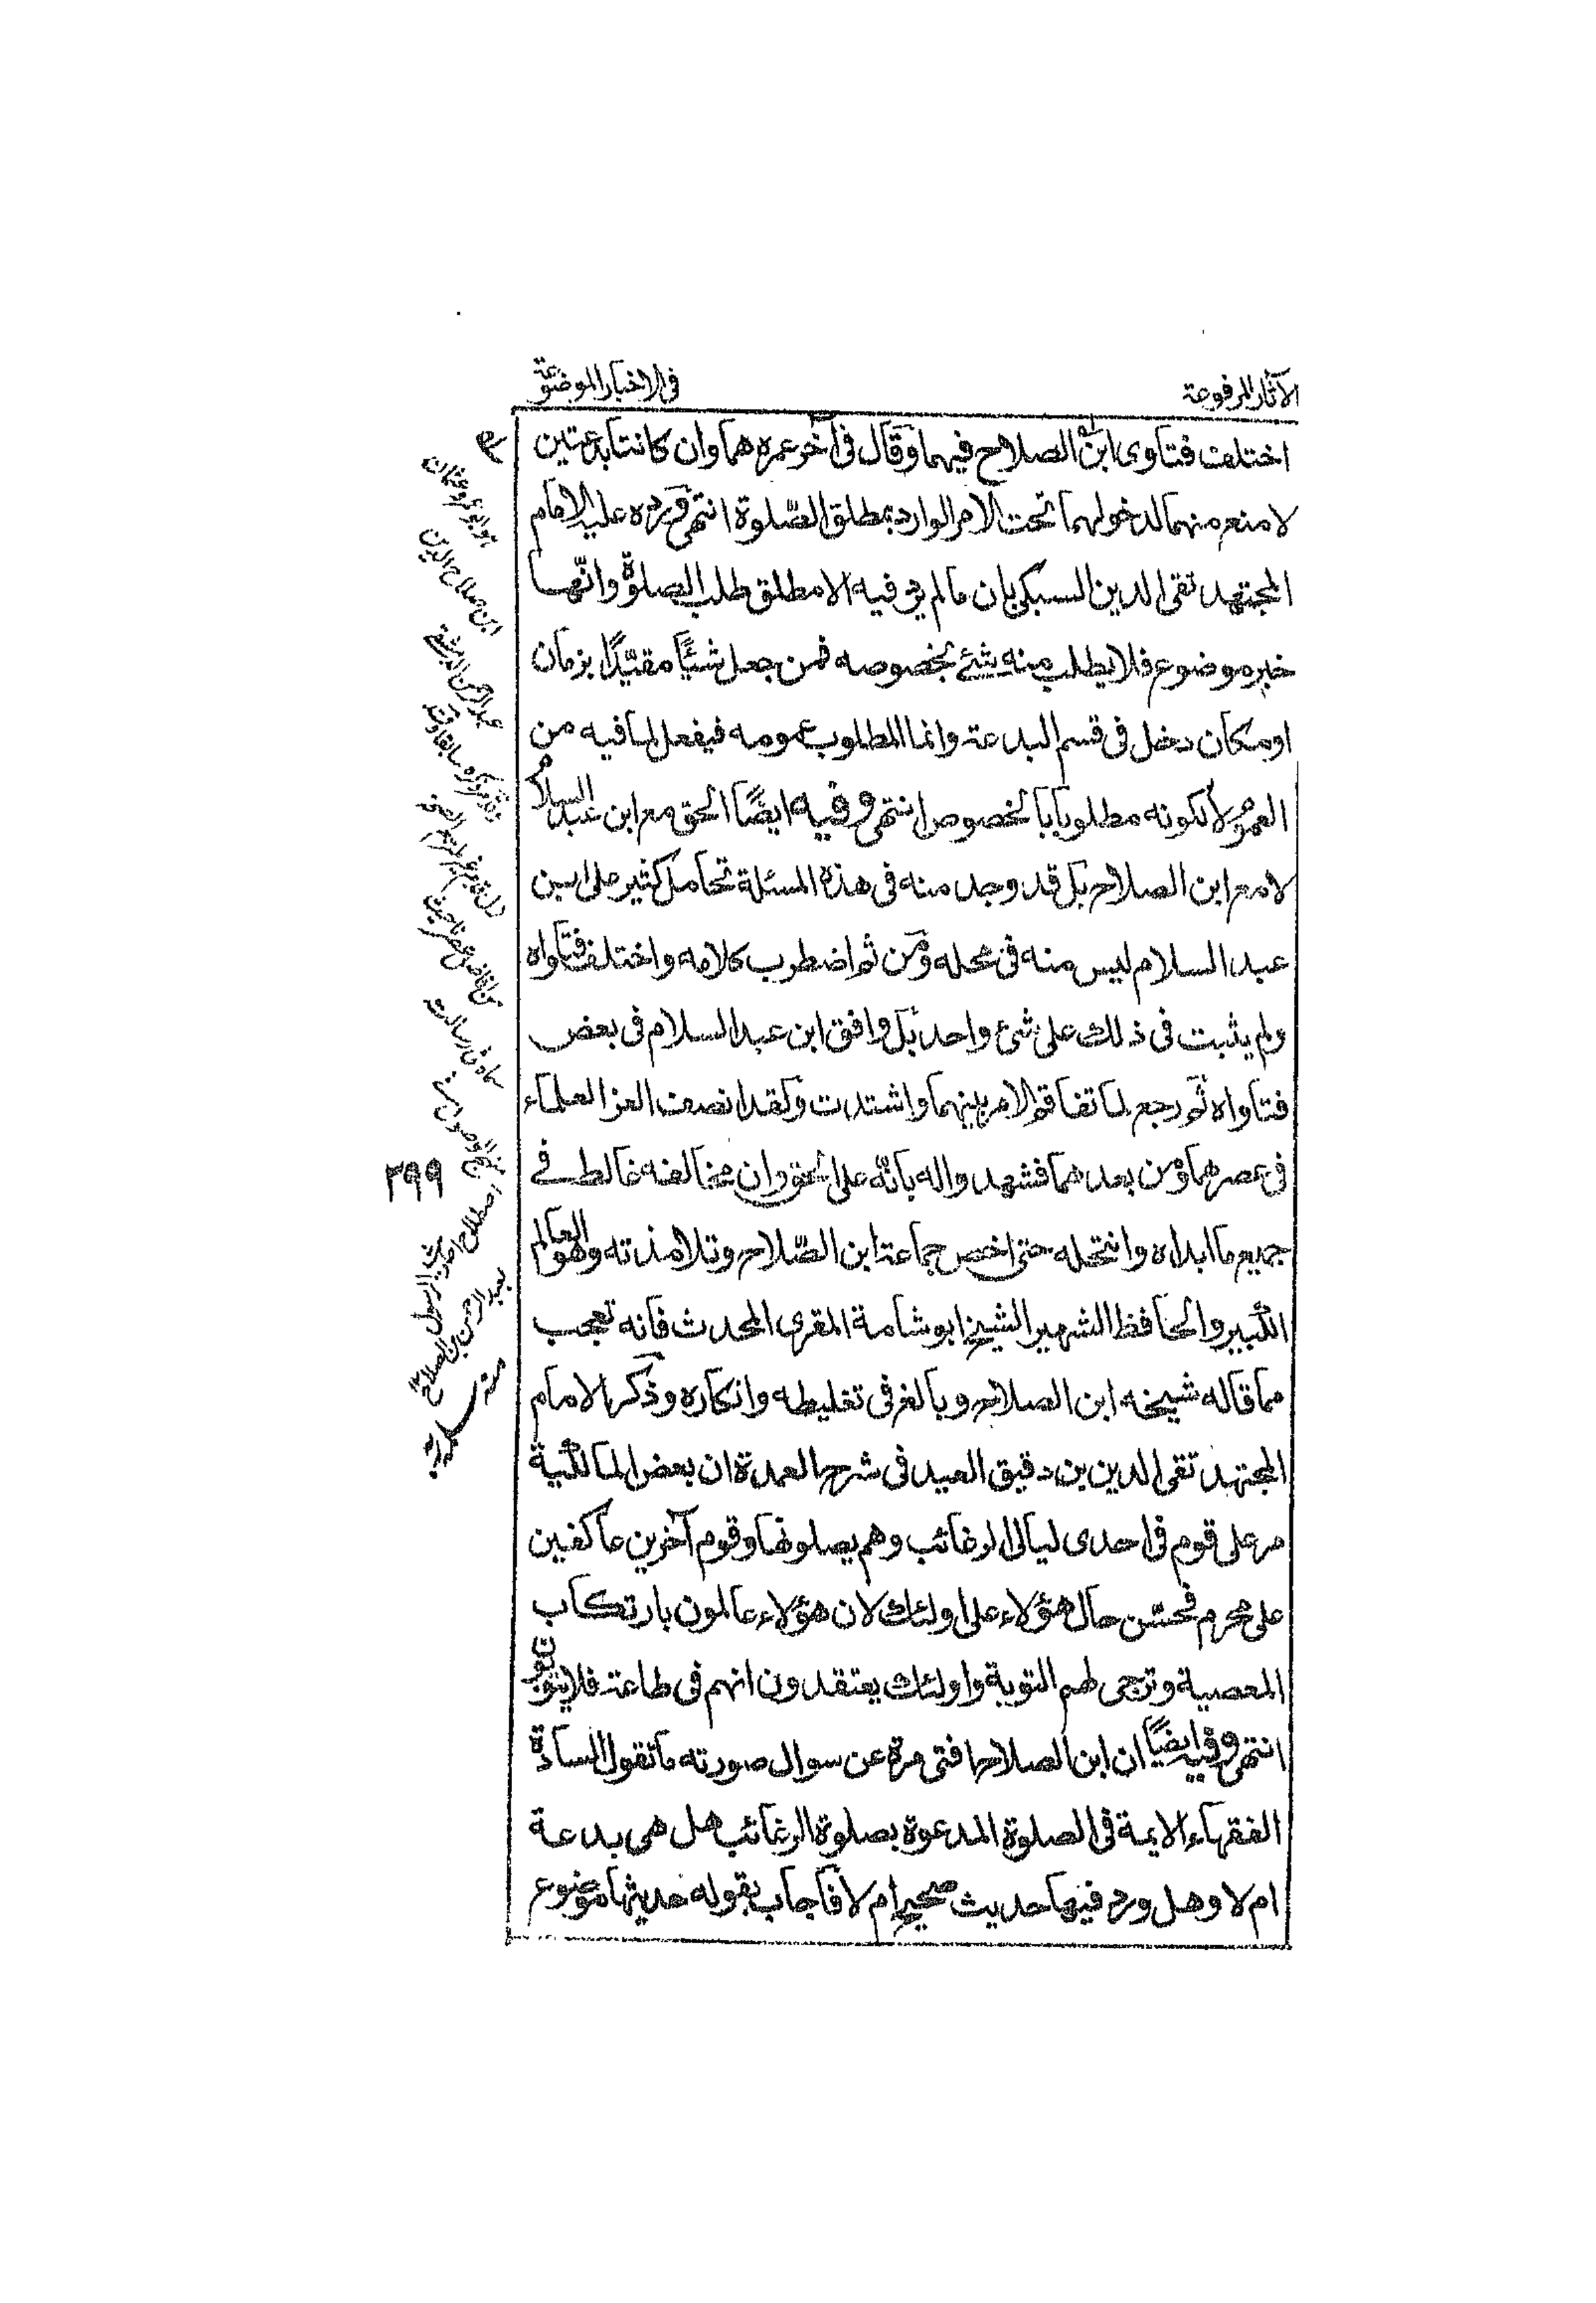 الآثار المرفوعة
في الاخبار الموضوعة
اختلفت فتاوى ابن الصلاح فيهما وقال في آخر عمره هما وان كانتا بدعتين
لا منع منهما لدخولهما تحت الامر الوارد بمطلق الصّلوة انتهى ورده عليه الامام
المجتهد تقى الدين السبكي بان مالم يرد فيه الا مطلق طلب الصلوة وانّها
خير موضوع فلا يطلب منه شئ بخصوصه فمن جعل شيئًا مقيّدًا بزمان
او مكان دخل في قسم البدعة وانما المطلوب عمومه فيفعل لما فيه من
العموم لا لكونه مطلوبا بالخصوص انتهى وفيه ايضًا الحق مع ابن عبد السلام
لا مع ابن الصلاح بل قد وجد منه في هذه المسئلة تحامل كثير على ابن
عبد السلام ليس منه في محله ومن ثم اضطرب كلامه واختلف فتاواه
ولم يثبت في ذلك على شئ واحد بل وافق ابن عبد السلام في بعض
فتاواه ثم رجع لما تفاقم الامر بينهما واشتدت ولقد انصف العز العلماء
في عصرهما ومن بعدهما فشهدوا له بانّه على الحق وان مخالفه غالط في
جميع ما ابداه وانتحله حتى اخص جماعة ابن الصّلاح وتلامذته وهو العالم
الكبير والحافظ الشهير الشيخ ابو شامة المقرى المحدث فانه تعجب
مما قاله شيخه ابن الصلاح وبالغ في تغليطه وانكاره وذكر الامام
المجتهد تقى الدين بن دقيق العيد في شرح العمدة ان بعض المالكية
مر على قوم في احدى ليالى الرغائب وهم يصلونها وقوم آخرين عاكفين
على محرم فحسّن حال هؤلاء على اولئك لان هؤلاء عالمون بارتكاب
المعصية وترجى لهم التوبة واولئك يعتقدون انهم في طاعة فلا يتوبون
انتهى وفيه ايضًا ان ابن الصلاح افتى مرة عن سوال صورته ما تقول السادة
الفقهاء الايمة في الصلوة المدعوة بصلوة الرغائب هل هي بدعة
ام لا وهل ورد فيها حديث صحيح ام لا فاجاب بقوله حديثها موضوع
هو ابو عمرو عثمان
ابن صلاح الدين
عبد الرحمن
٢٩٩